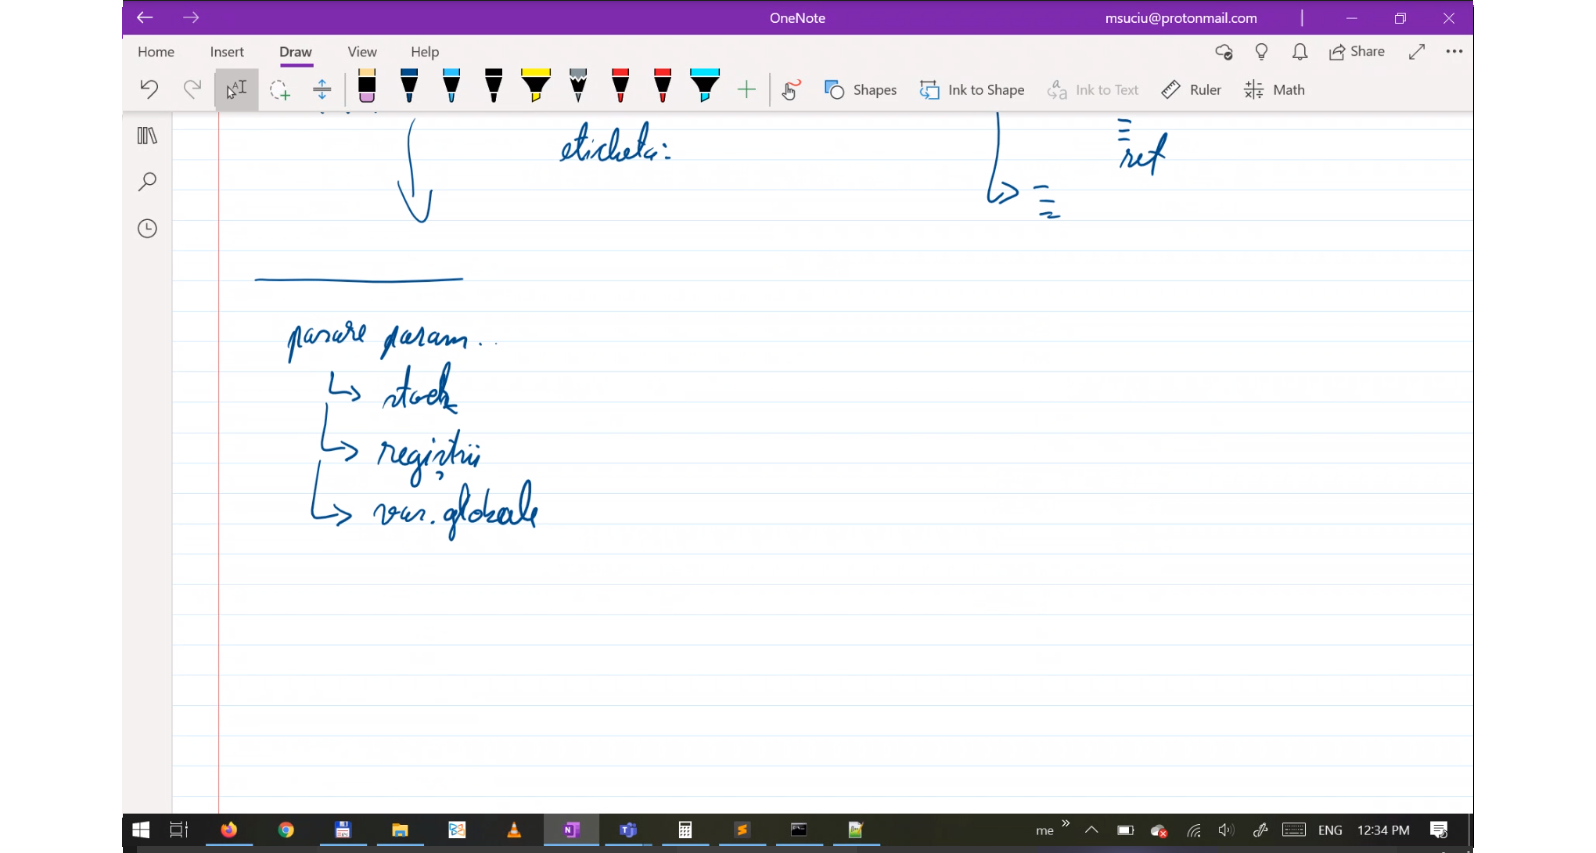 OneNote
msuciu@protonmail.com
Home Insert Draw View Help
Share
Shapes Ink to Shape Ink to Text Ruler Math
eticheta:
ret
pasare param..
stack
regiștrii
var. globale
me ENG 12:34 PM